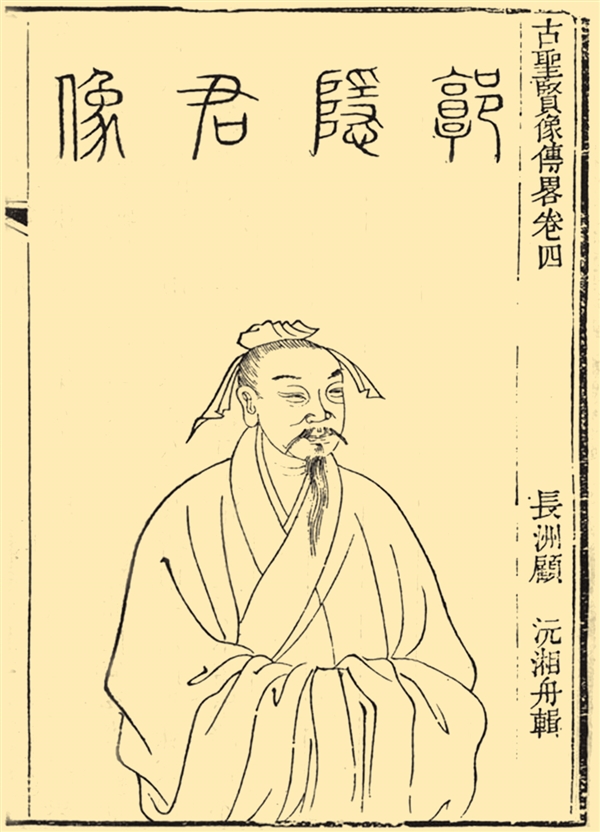 古聖賢像傳畧卷四
長洲顧 沅湘舟輯
郭隱君像